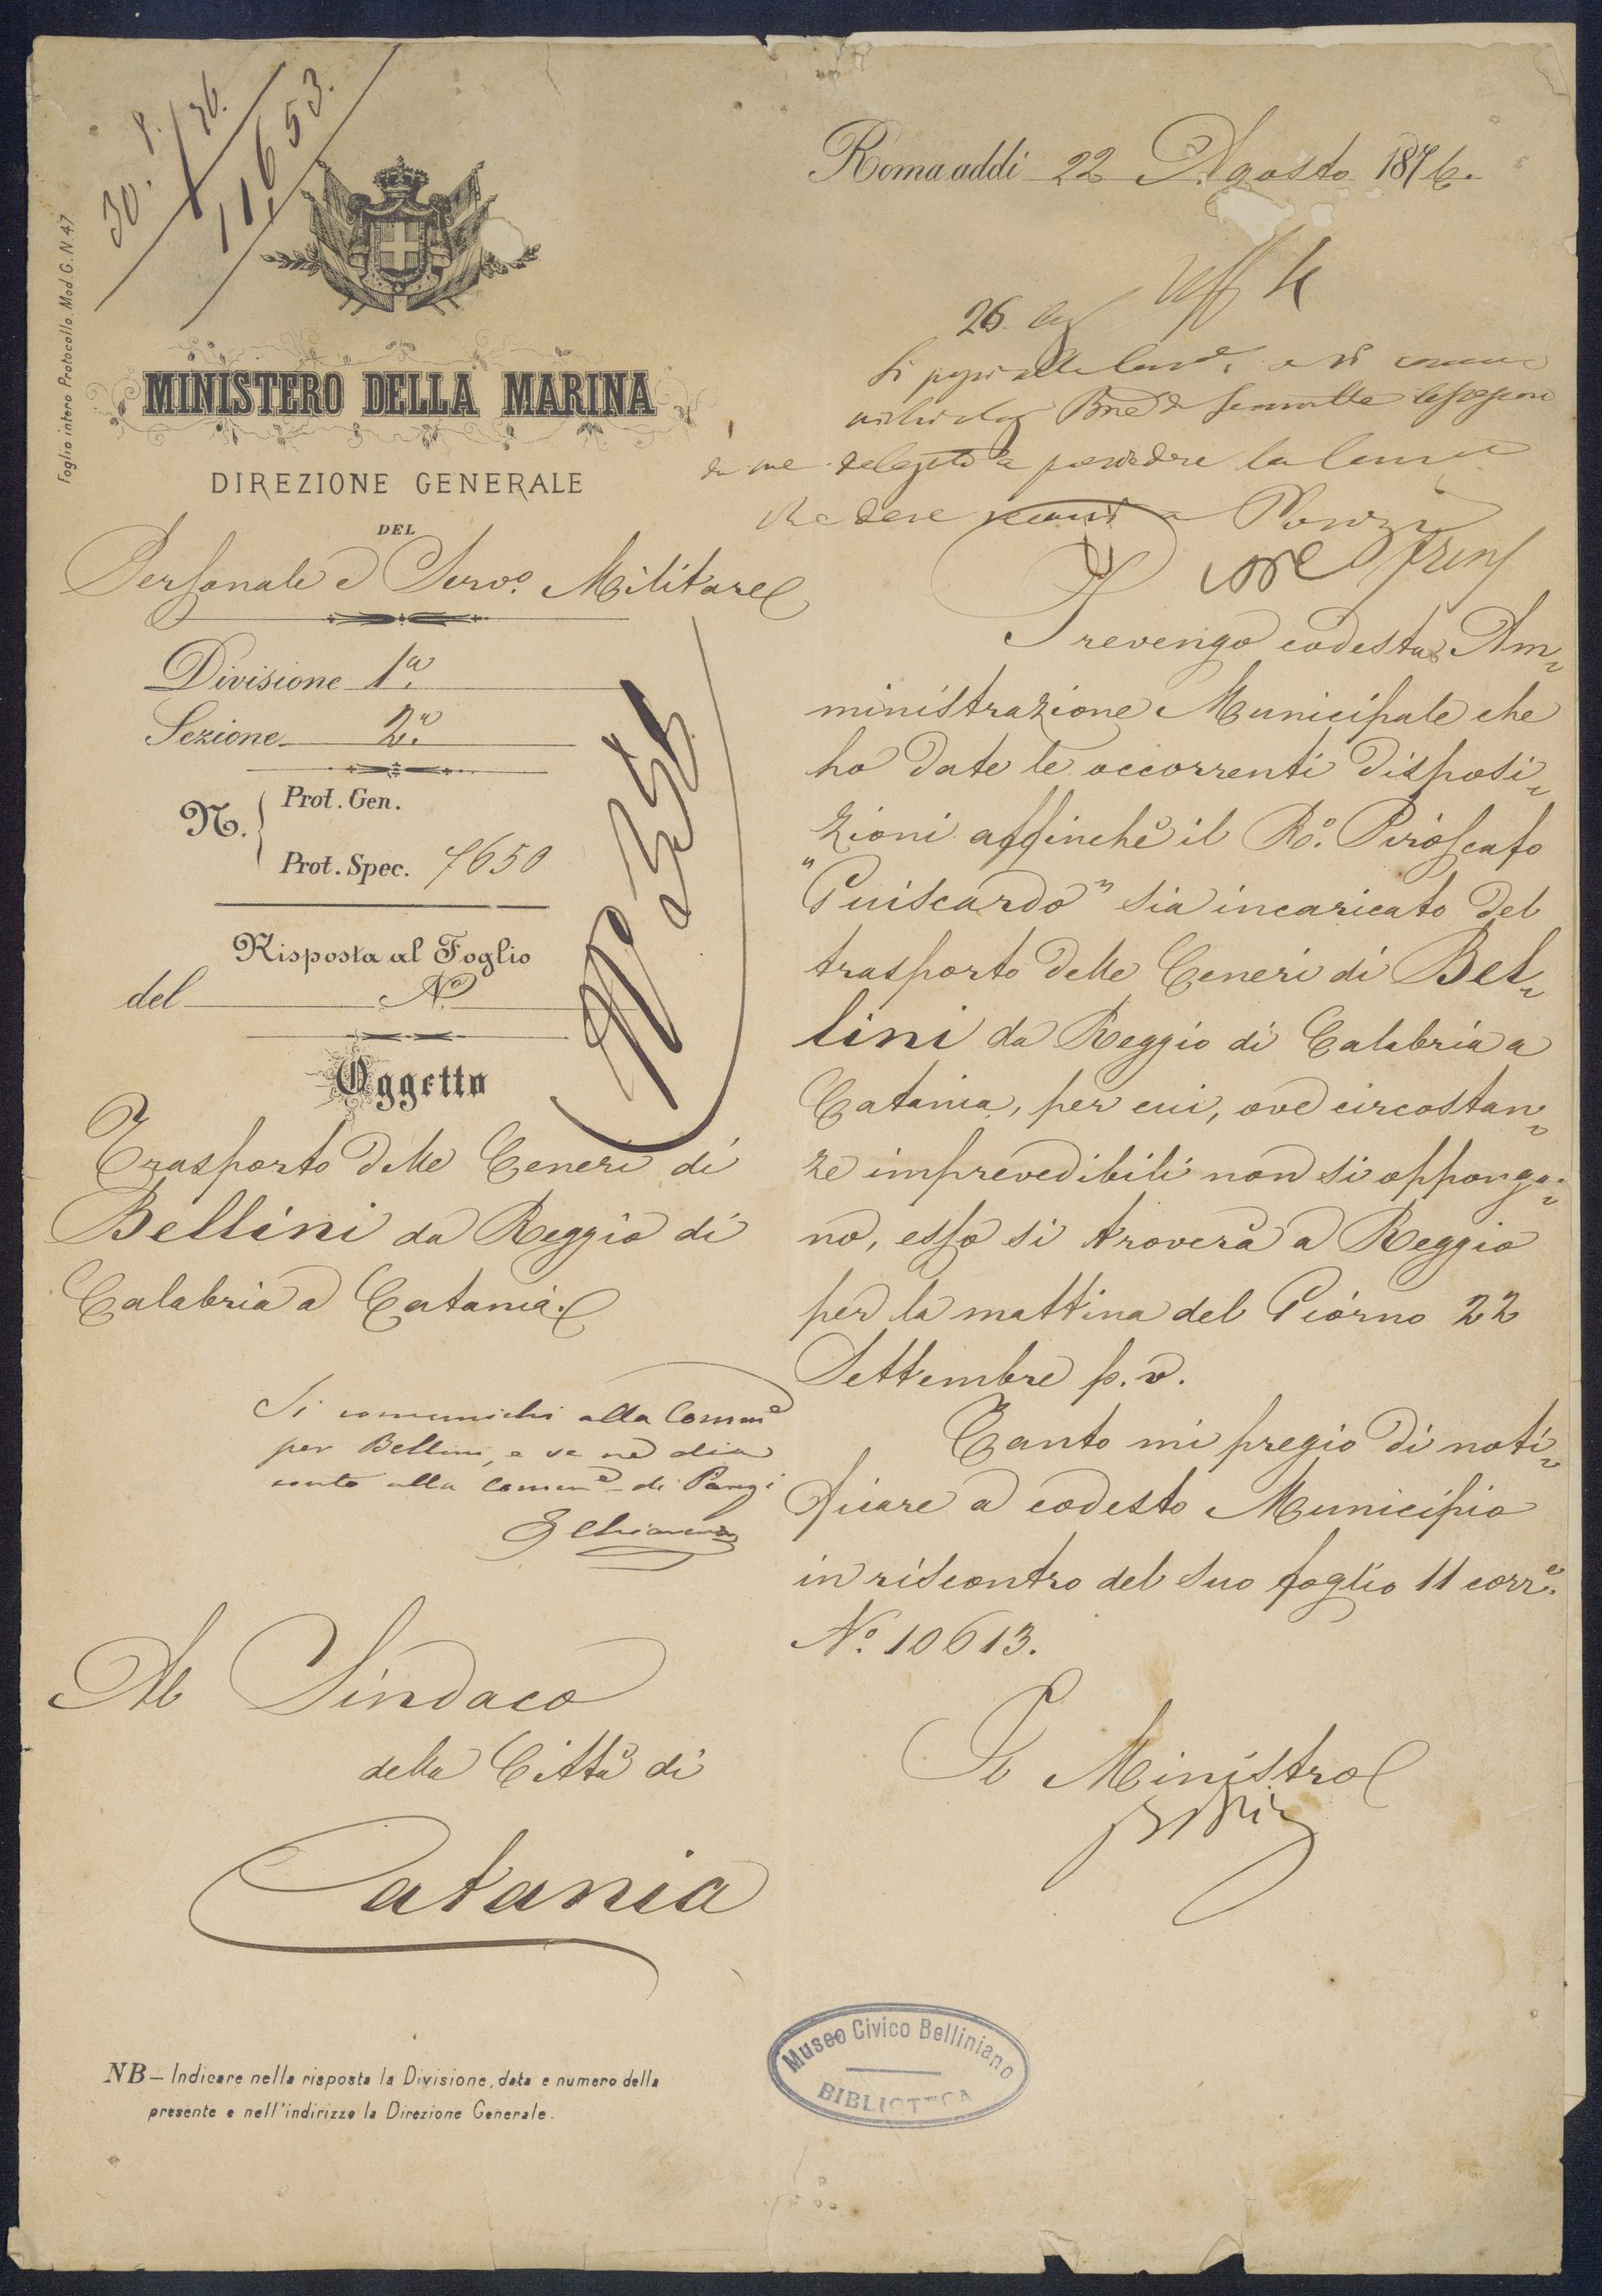 30. 8./76.
11,653.
Foglio intero Protocollo Mod. G. N 47
MINISTERO DELLA MARINA
DIREZIONE GENERALE
DEL
Personale e Servo. Militare
Divisione 1a.
Sezione 2a.
N. Prot. Gen.
Prot. Spec. 7650
Risposta al Foglio
del No.
Oggetto
Trasporto delle Ceneri di
Bellini da Reggio di
Calabria a Catania.
Si comunichi alla Comme
per Bellini, e se ne dia
conto alla Comme di Parigi
Al Sindaco
della Città di
Catania
NB — Indicare nella risposta la Divisione, data e numero della
presente e nell'indirizzo la Direzione Generale.
Roma addi 22 Agosto 1876.
Uff
26.
da me delegato a presiedere la
Prevengo codesta Am„
ministrazione Municipale che
ho date le occorrenti disposi„
zioni affinchè il Ro. Piroscafo
"Guiscardo" sia incaricato del
trasporto delle Ceneri di Bel„
lini da Reggio di Calabria a
Catania, per cui, ove circostan„
ze imprevedibili non si opponga„
no, esso si troverà a Reggio
per la mattina del Giorno 22
Settembre p. v.
Tanto mi pregio di noti„
ficare a codesto Municipio
in riscontro del suo foglio 11 corre.
No. 10613.
Il Ministro
Museo Civico Belliniano
BIBLIOTECA